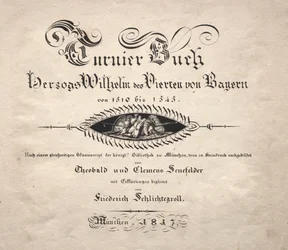 Turnier Buch
Herzogs Wilhelm des Vierten von Bayern
von 1510 bis 1545.
Nach einem gleichzeitigen Manuscript der königl. Bibliothek zu München, treu in Steindruck nachgebildet
von
Theobald und Clemens Senefelder
mit Erklärungen begleitet
von
Friederich Schlichtegroll.
München, 1817.